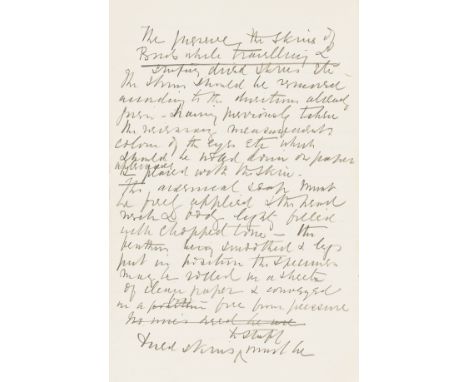 The preserve the skins of
Birds while travelling &
stuffing dried skins etc -
The skins should be removed
according to the directions already
given - Having previously taken
the necessary measurements
colour of the eyes etc which
should be noted down on paper
afterwards
& placed with the skin.
The arsenical soap must
be freely applied & the head
neck & body light filled
with chopped tow - the
feathers being smoothed & legs
put in position the specimen
may be rolled in a sheets
of clean paper & conveyed
in a position free from pressure
no wires need be use
to stuff
Dried skins, must be